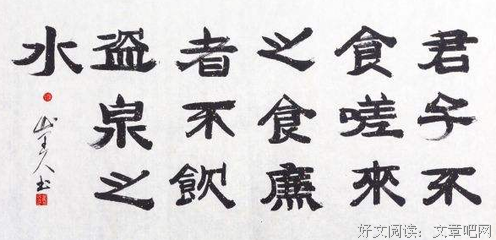 君子不
食嗟來
之食廉
者不飲
盜泉之
水
山 人 书
好文阅读:文章吧网